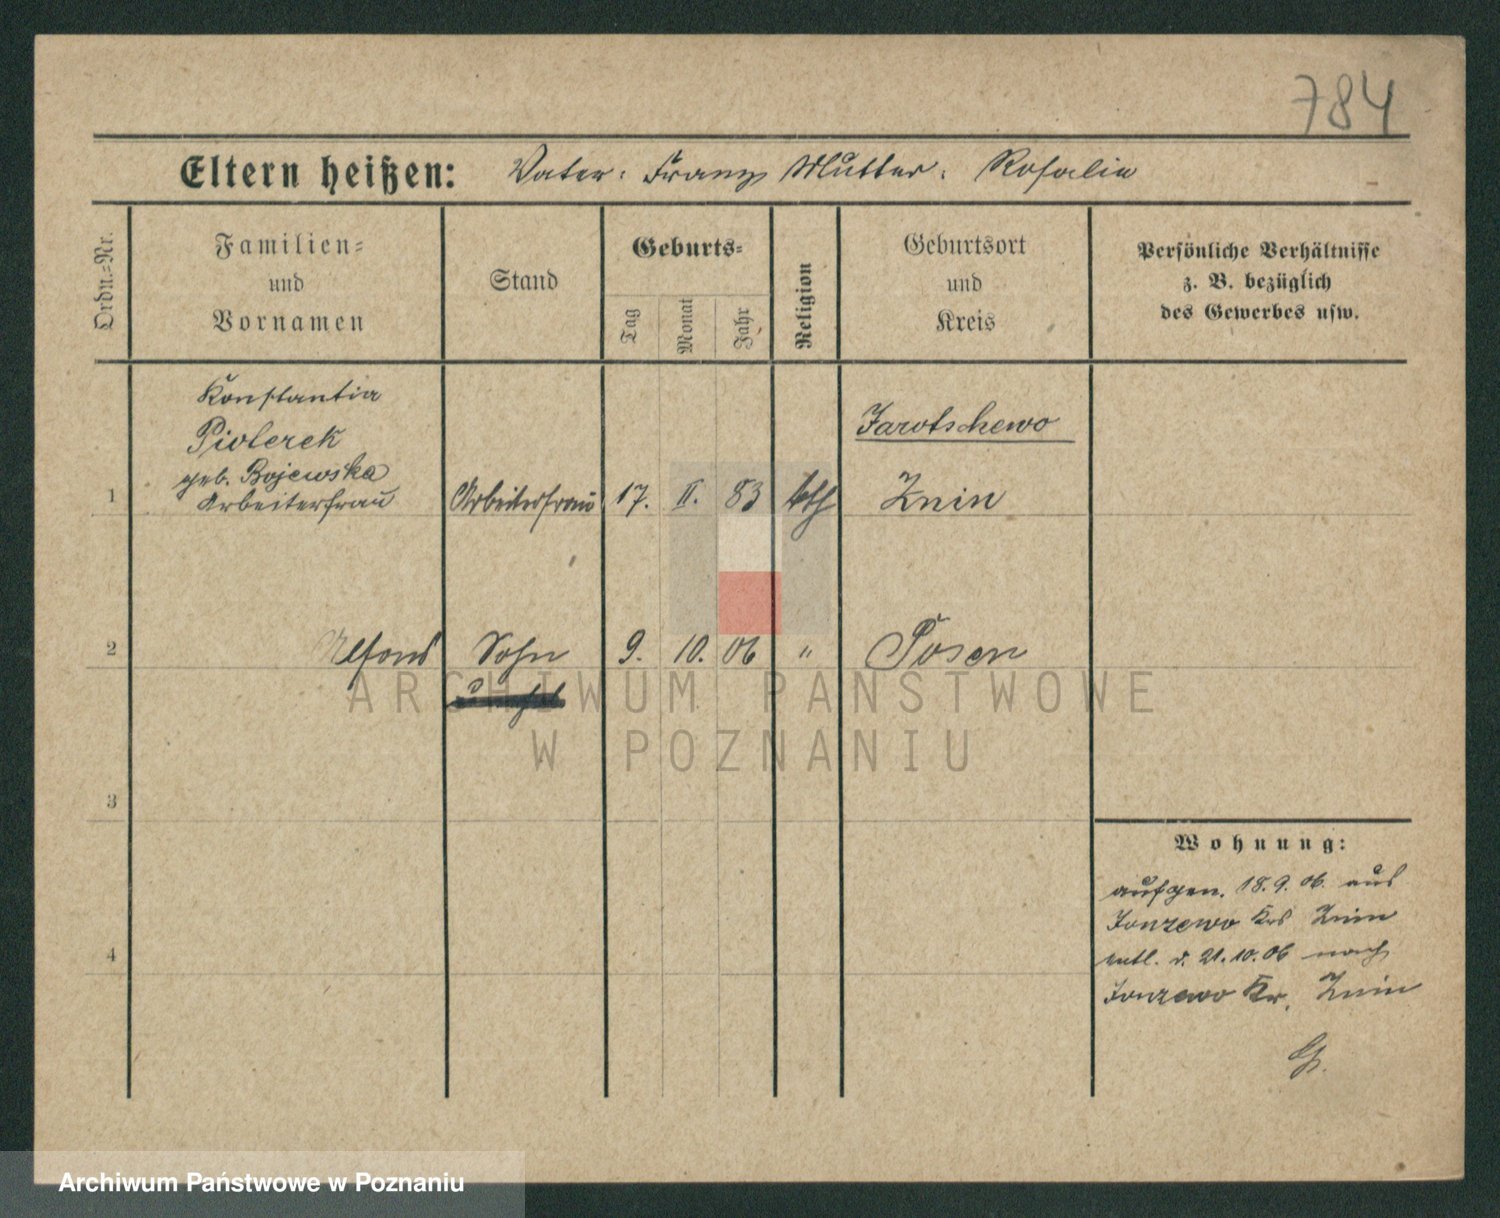 784
Eltern heißen: Vater: Franz Mutter: Rosalie
Ordn.=Nr.
Familien=
und
Vornamen
Stand
Geburts=
Tag
Monat
Jahr
Religion
Geburtsort
und
Kreis
Persönliche Verhältnisse
z. B. bezüglich
des Gewerbes usw.
Konstantia
Pioterek
geb. Bojewska
Arbeiterfrau
1 Arbeiterfrau 17. II. 83 kth Znin
Jarotschewo
2 Alfons Sohn 9. 10. 06 " Posen
3
4
Wohnung:
aufgen. 18.9.06. aus
Krs Znin
entl. d. 21.10.06 nach
Kr. Znin
ARCHIWUM PAŃSTWOWE
W POZNANIU
Archiwum Państwowe w Poznaniu